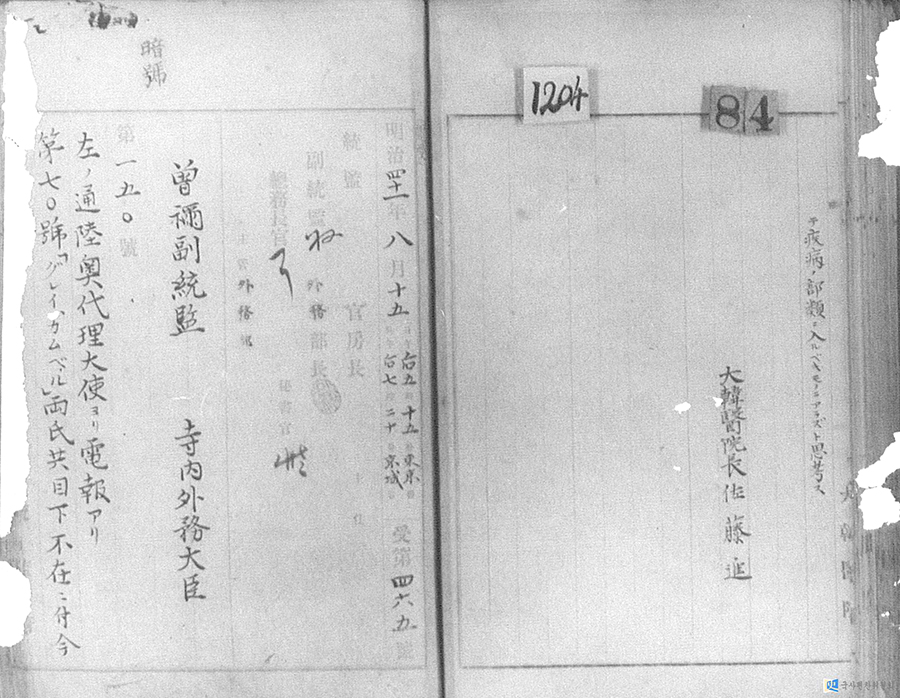 84
1204
テ疾病ノ部類ニ入ルベキモノニアラズト思考ス
大韓醫院長佐藤進
明治四十一年八月十五 后五 十五 東京
后七 二十 京城
受第四六五號
統監
副統監
總務長官
官房長
外務部長
秘書官
主管 外務部
曾禰副統監 寺内外務大臣
暗號
第一五〇號
左ノ通陸奧代理大使ヨリ電報アリ
第七〇號「グレイ、カムベル」両氏共目下不在ニ付今
국사편찬위원회